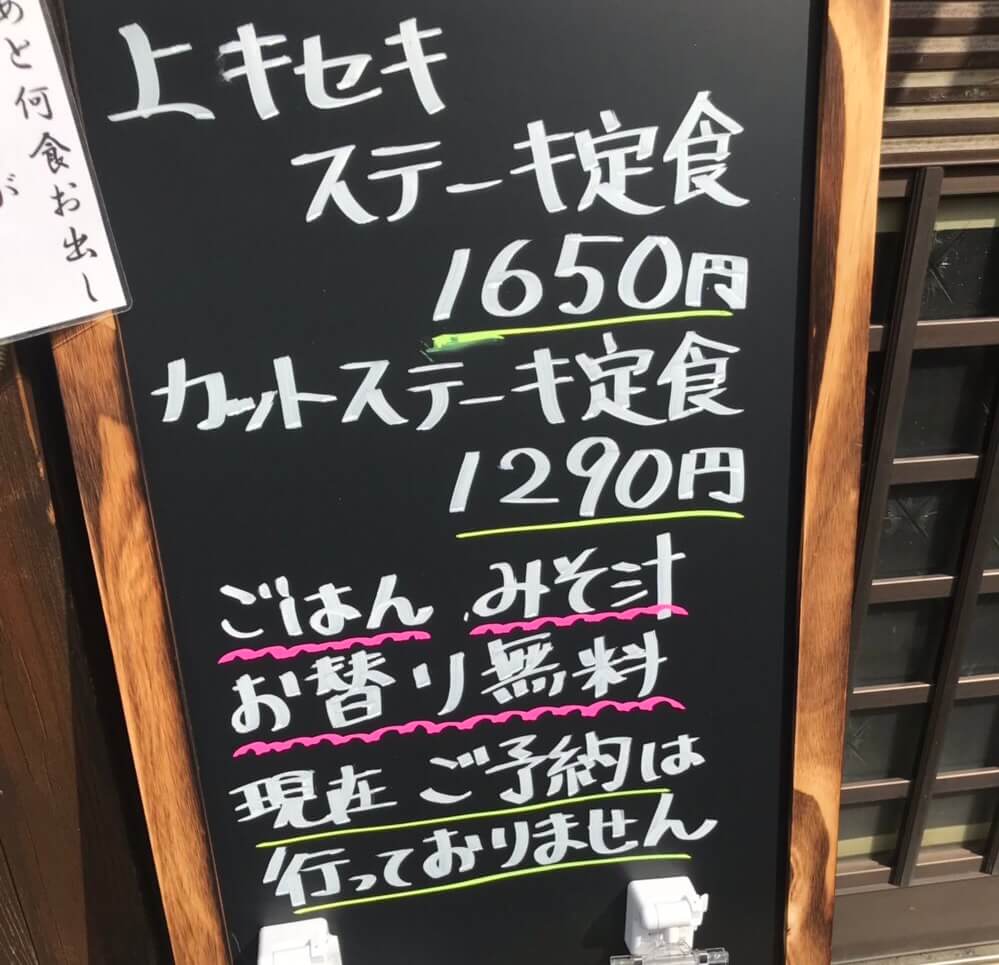 上キセキ
ステーキ定食
1650円
カットステーキ定食
1290円
ごはん みそ汁
お替り無料
現在 ご予約は
行っておりません
あと何食お出し
が